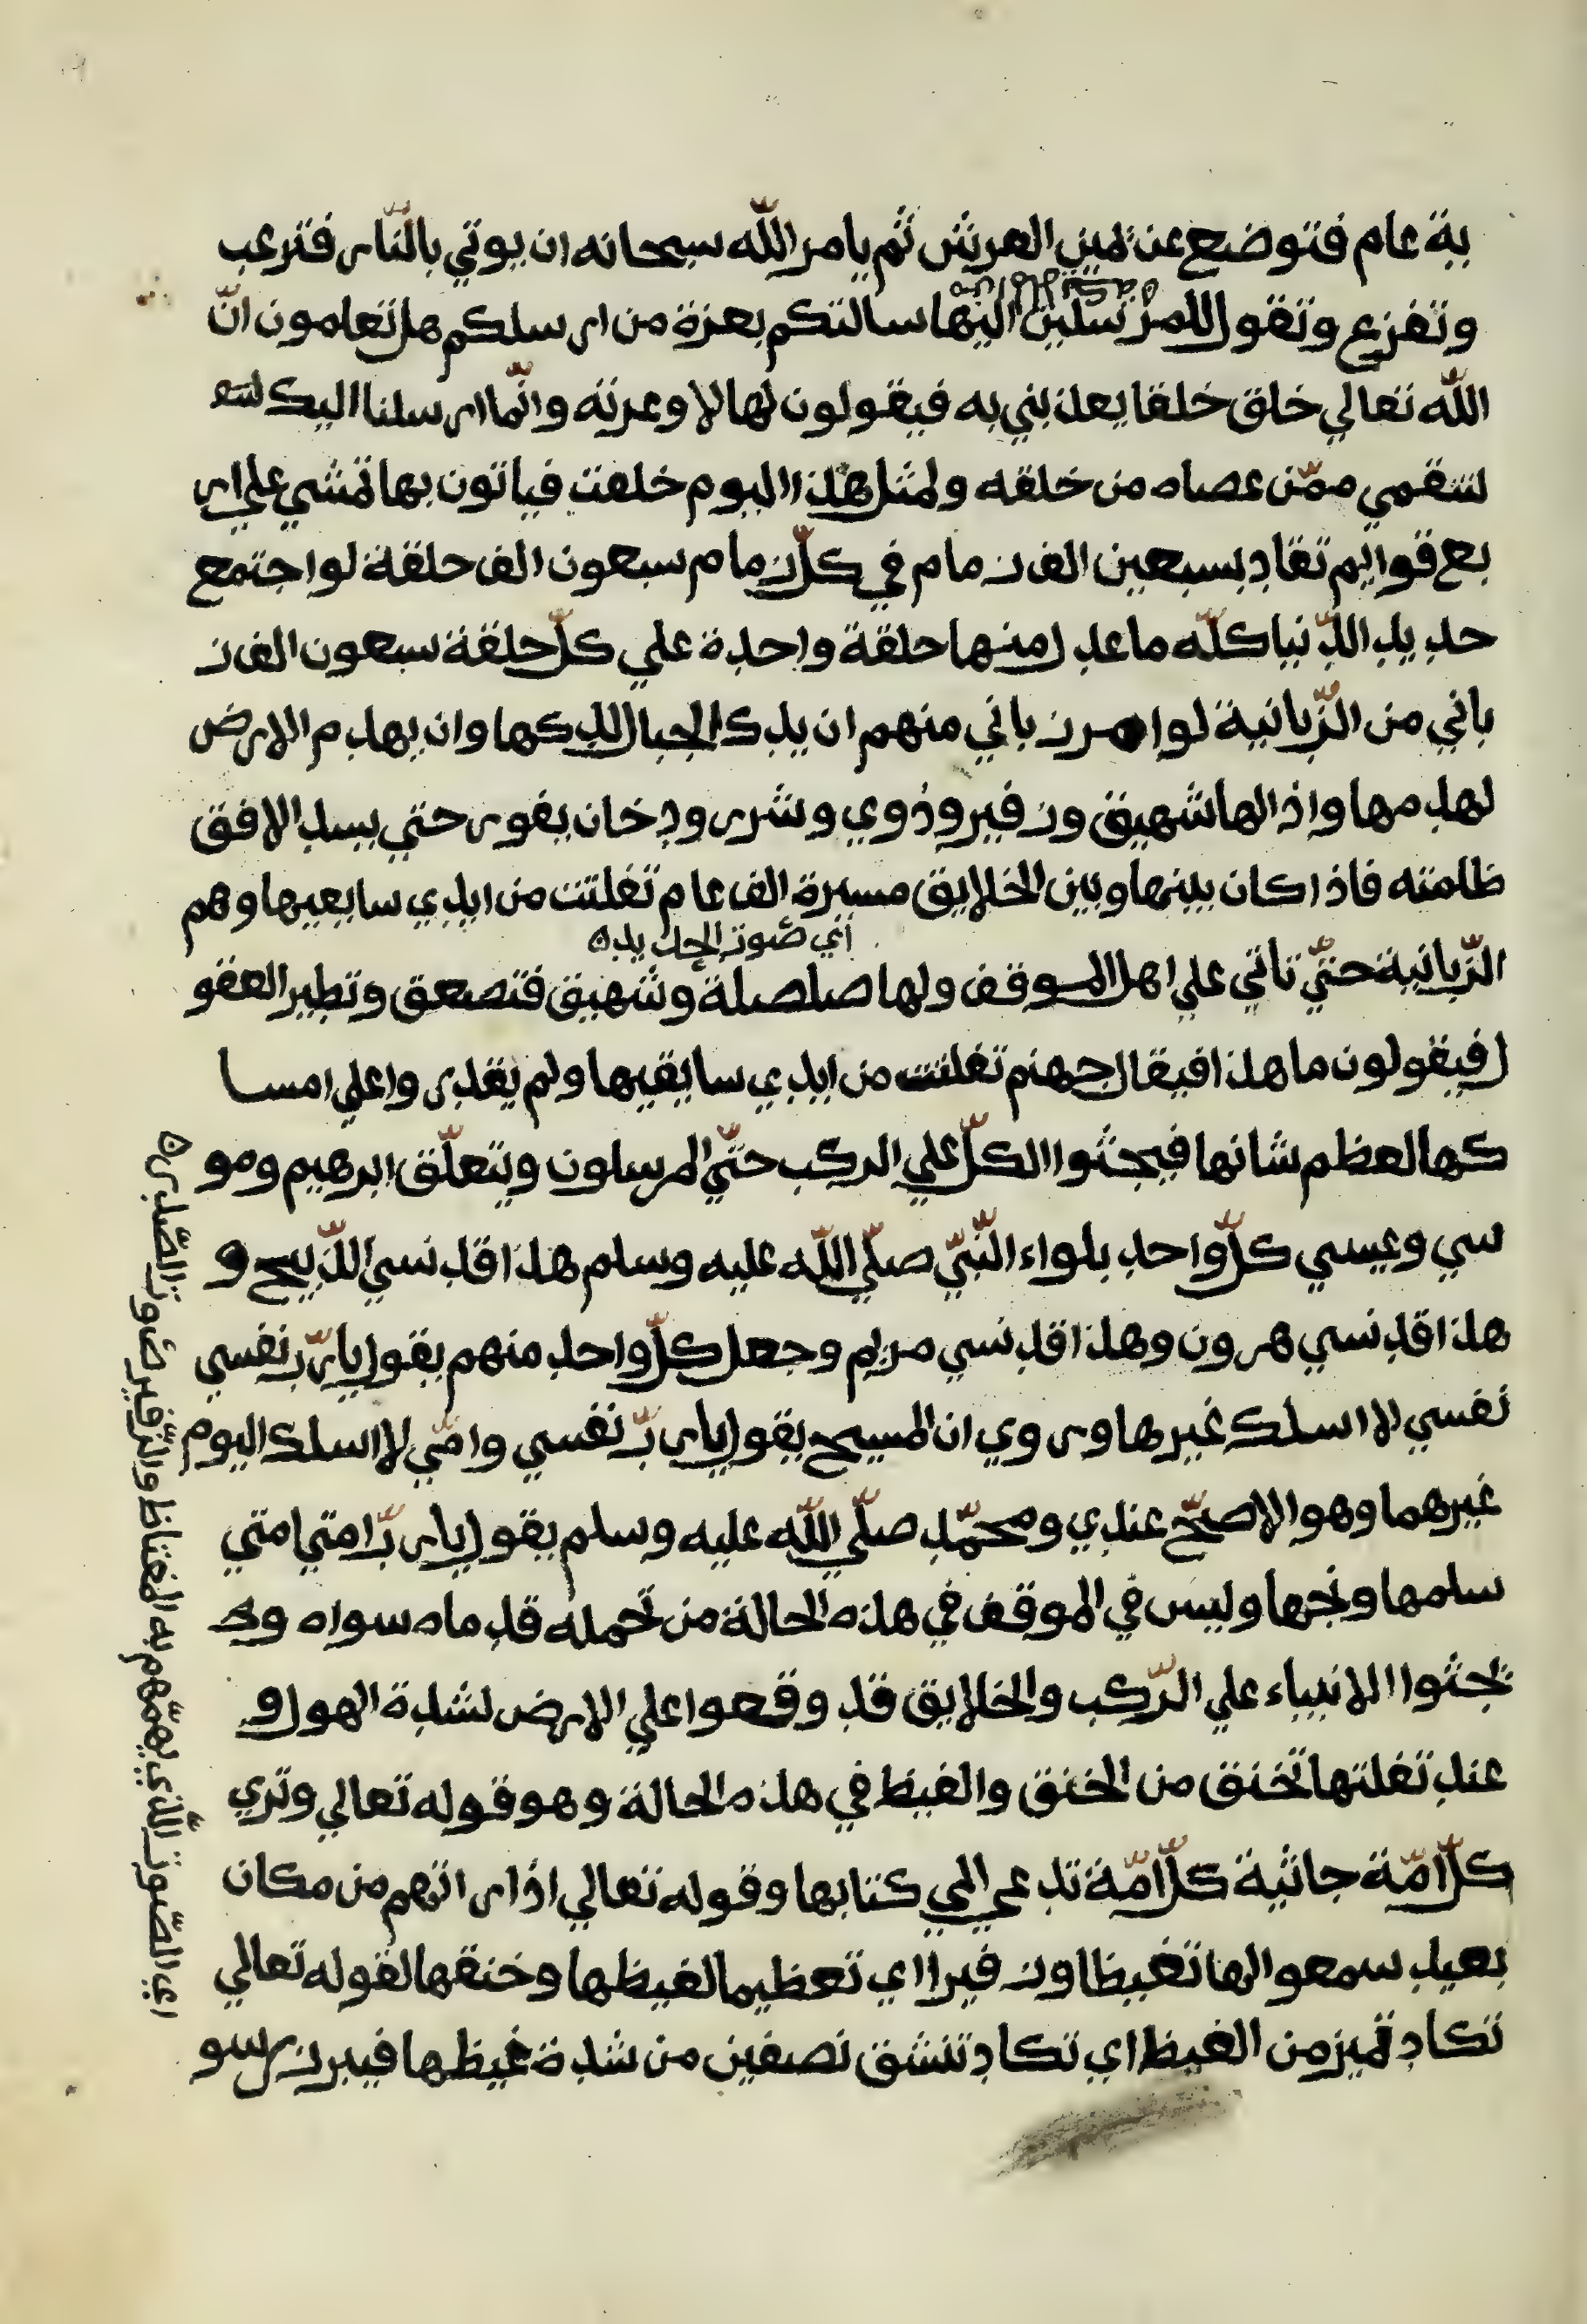 ية عام فتوضع عن يمين العرش ثم يامر الله سبحانه ان يوتي بالنّار فترعب
وتفزع وتقول للمرسلين اليها سالتكم بعزة من ارسلكم هل تعلمون انّ
الله تعالي خلق خلقا يعذبني به فيقولون لها لا وعزته وانّما ارسلنا اليك
لتنتقمي ممّن عصاه من خلقه ولمثل هذا اليوم خلقت فياتون بها تمشي علي ار
بع قوايم تقاد بسبعين الف زمام في كلّ زمام سبعون الف حلقة لو اجتمع
حديد الدّنيا كلّه ما عدل منها حلقة واحدة علي كلّ حلقة سبعون الف ز
باني من الزّبانية لو امر زباني منهم ان يدك الجبال لدكها وان يهدم الارض
لهدمها واذا لها شهيق وزفير وذوي وشرر ودخان يفور حتي يسد الافق
ظلمته فاذا كان بينها وبين الخلايق مسيرة الف عام تفلتت من ايدي سايعيها وهم
أي صوت الحديد
الزّبانية حتّي تاتي علي اهل الموقف ولها صلصلة وشهيق فتصعق وتطير العقو
ل فيقولون ما هذا فيقال جهنم تفلتت من ايدي سايقيها ولم يقدروا علي امسا
كها لعظم شانها فيجثوا الكلّ علي الركب حتّي المرسلون ويتعلّق ابرهيم ومو
سي وعيسي كلّ واحد بلواء النّبيّ صلّي الله عليه وسلم هذا قد نسي الذّبيح و
هذا قد نسي هرون وهذا قد نسي مريم وجعل كلّ واحد منهم يقول يا ربّ نفسي
نفسي لا اسلك غيرها وروي ان المسيح يقول يا ربّ نفسي وامّي لا اسلك اليوم
غيرهما وهو الاصحّ عندي ومحمّد صلّي الله عليه وسلم يقول يا ربّ امتي امتي
سلمها ونجها وليس في الموقف في هذه الحالة من تحمله قدماه سواه و
تجثوا الانبياء علي الرّكب والخلايق قد وقعوا علي الارض لشدة الهول و
عند تفلتها تخنق من الخنق والغيظ في هذه الحالة وهو قوله تعالي وتري
كلّ امّة جاثية كلّ امّة تدعي الي كتابها وقوله تعالي اذا راتهم من مكان
بعيد سمعوا لها تغيظا وزفيرا اي تعظيما لغيظها وخنقها لقوله تعالي
تكاد تميز من الغيظ اي تكاد تنشق نصفين من شدة غيظها فيبرز رسو
اي الصّوت الّذي يهمّهم به المغتاظ والزّفير صوت الصّدر